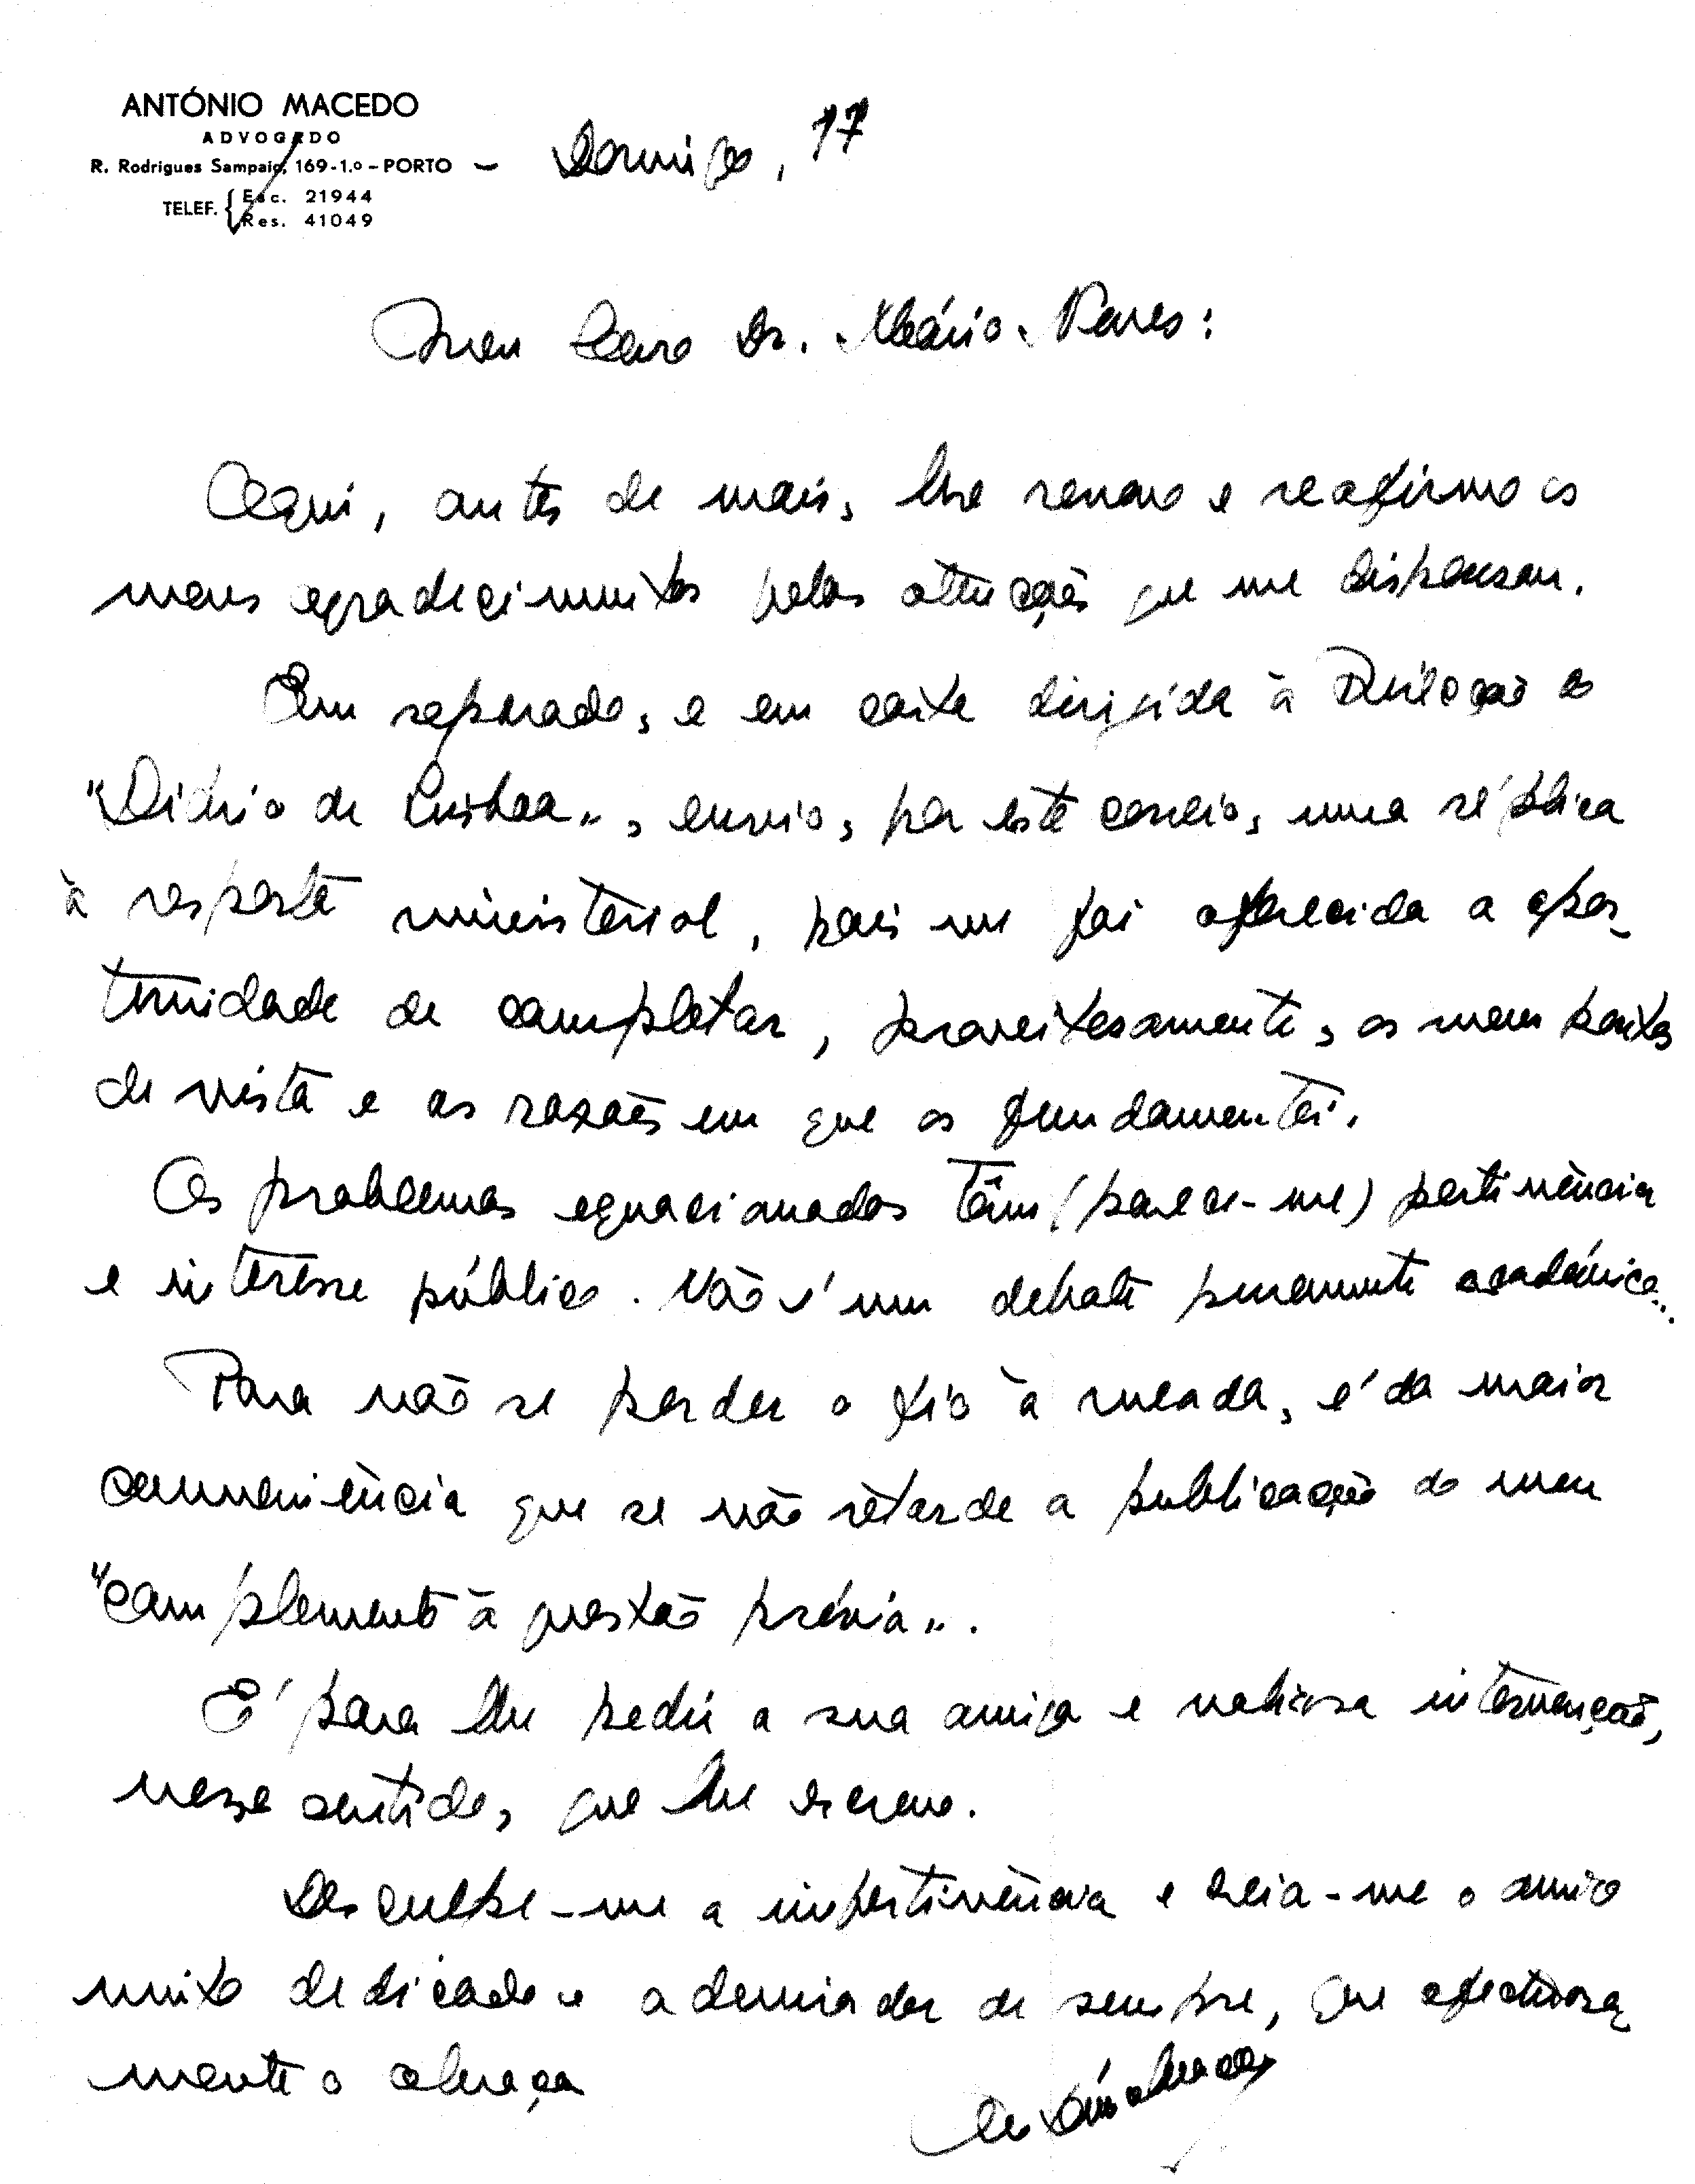 ANTÓNIO MACEDO
ADVOGADO
R. Rodrigues Sampaio, 169-1.º - PORTO - Domingo, 17
TELEF. { Esc. 21944
Res. 41049
Meu Caro Dr. Mário Neves:
Aqui, antes de mais, lhe renovo e reafirmo os
meus agradecimentos pelas atenções que me dispensou.
Em separado, e em carta dirigida à Direcção do
"Diário de Lisboa", envio, por este correio, uma réplica
à resposta ministerial, pois me foi oferecida a opor-
tunidade de completar, proveitosamente, os meus pontos
de vista e as razões em que os fundamentei.
Os problemas equacionados têm (parece-me) pertinência
e interesse público. Não é um debate puramente académico...
Para não se perder o fio à meada, é da maior
conveniência que se não retarde a publicação do meu
"complemento à questão prévia".
É para lhe pedir a sua amiga e valiosa intervenção,
nesse sentido, que lhe escrevo.
Desculpe-me a impertinência e creia-me o amigo
muito dedicado e admirador de sempre, que afectuosa-
mente o abraça
António Macedo